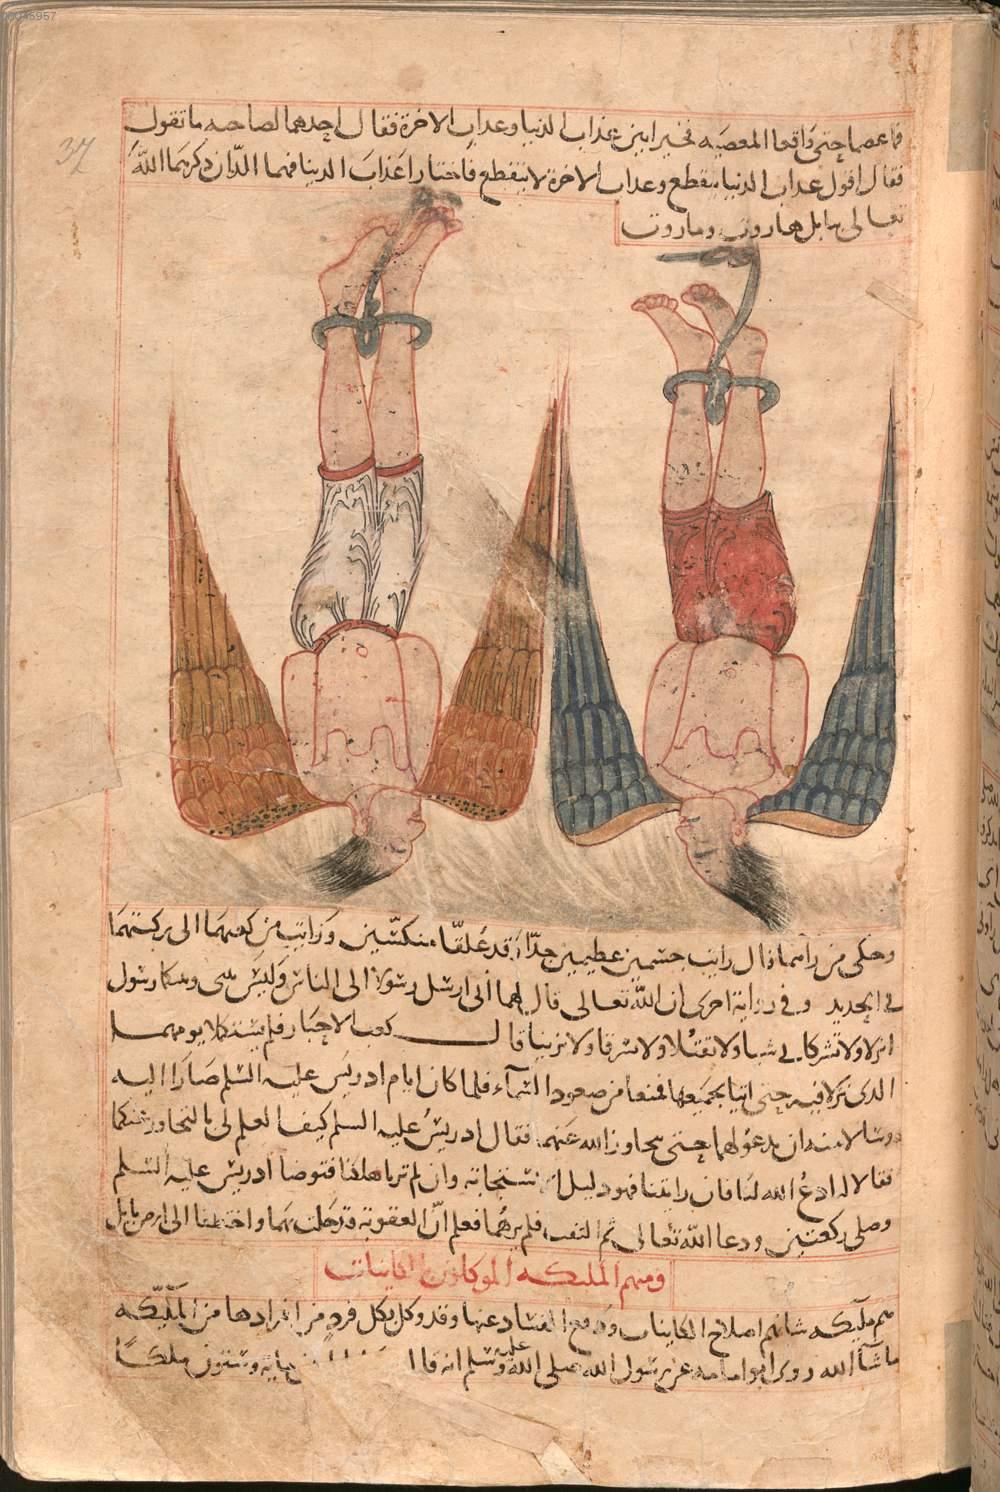 00045957
37
فما عصما حتى واقعا المعصيه فخير ابين عذاب الدنيا وعداب الاخرة فقال احدهما لصاحبه ما تقول
فقال اقول عداب الدنيا ينقطع وعداب الاخرة لا ينقطع فاختارا عذاب الدنيا فهما اللذان ذكرهما الله
تعالى ببابل هاروت وماروت
وحكى من رآهما قال رايت جسمين عظيمين جدا قد علقا منكسين ورايت من كعبهما الى ركبتهما
في الحديد وفى رواية اخرى ان الله تعالى قال لهما انى ارسل رسولا الى الناس وليس بينى وبينكما رسول
انزلا ولا تشركا بى شيا ولا تقتلا ولا تسرقا ولا تزنيا قال كعب الاحبار فلم يستكملا يومهما
الذى نزلا فيه حتى اتيا بجميعها فمنعا من صعود السماء فلما كان ايام ادريس عليه السلم صارا اليه
وسالا منه ان يدعو لهما حتى يتجاوز الله عنهما فقال ادريس عليه السلم كيف العلم لى بالتجاوز عنكما
فقالا له ادع الله لنا فان رايتنا فهو دليل الاستجابة وان لم ترنا هلكنا فتوضا ادريس عليه السلم
وصلى ركعتين ودعا الله تعالى ثم التفت فلم يرهما فعلم ان العقوبة قد حلت بهما واختطفا الى ارض بابل
ومنهم الملئكه الموكلون بالكاينات
هم ملئكه شانهم اصلاح الكاينات ودفع الفساد عنها وقد وكل بكل فرد من افرادها من الملئكه
ما شآ الله روى ابو امامه عن رسول الله صلى الله عليه وسلم انه قال مايه وستون ملكا